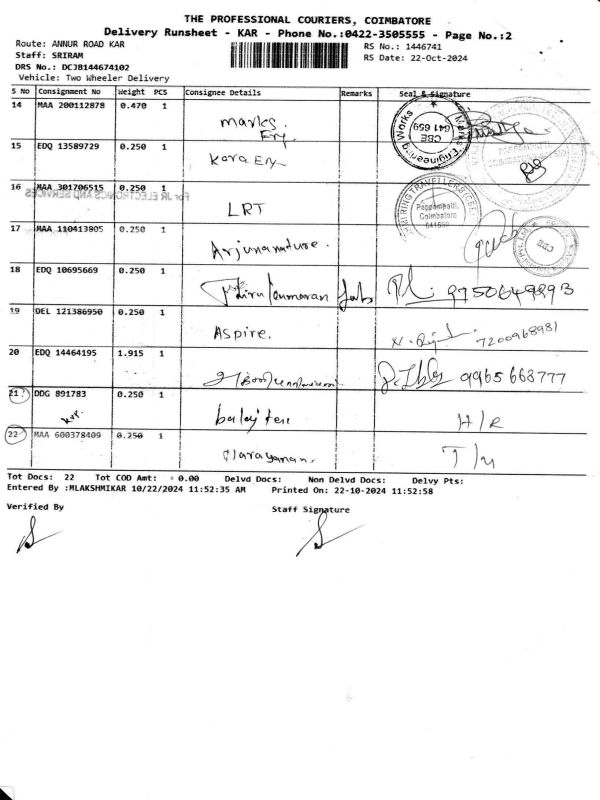 THE PROFESSIONAL COURIERS, COIMBATORE
Delivery Runsheet - KAR - Phone No.:0422-3505555 - Page No.:2
Route: ANNUR ROAD KAR
RS No.: 1446741
Staff: SRIRAM
RS Date: 22-Oct-2024
DRS No.: DCJB144674102
Vehicle: Two Wheeler Delivery
S No Consignment No Weight PCS Consignee Details Remarks Seal & Signature
14 MAA 200112878 0.470 1
marks.
Ery.
Marks Engineering Works
CBE
641 659
15 EDQ 13589729 0.250 1
Kara Ery
16 MAA 301706515 0.250 1
For JR ELECTRONICS AND SERVICES
LRT
TRAVELLERS (CBE)
Coimbatore
641659
17 MAA 110413805 0.250 1
Arjunamature.
CBE
18 EDQ 10695669 0.250 1
19 DEL 121386950 0.250 1
Aspire.
7200968981
20 EDQ 14464195 1.915 1
9965 668777
21 DDG 891783 0.250 1
H/R
22 MAA 600378409 0.250 1
Tot Docs: 22 Tot COD Amt: 0.00 Delvd Docs: Non Delvd Docs: Delvy Pts:
Entered By :MLAKSHMIKAR 10/22/2024 11:52:35 AM Printed On: 22-10-2024 11:52:58
Verified By
Staff Signature